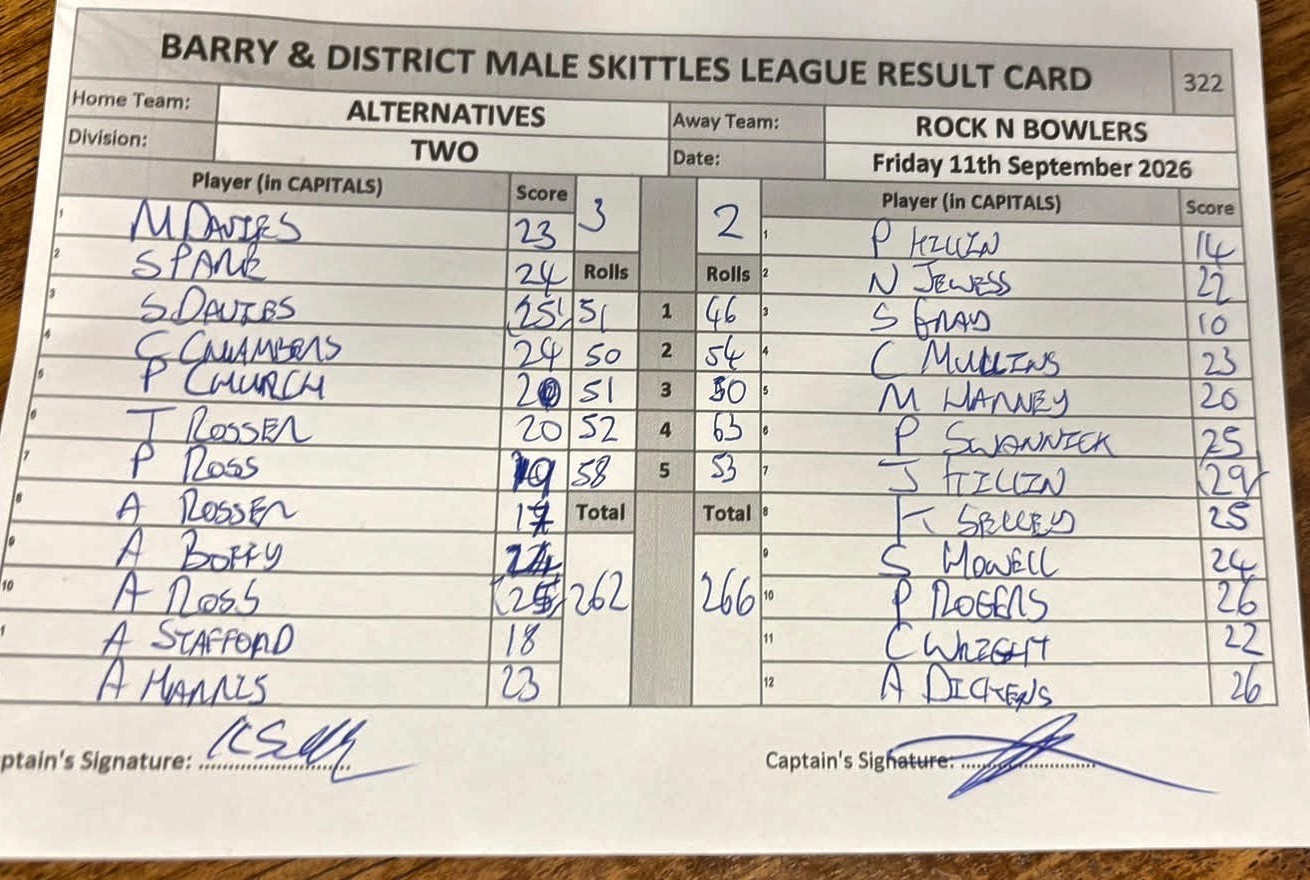 BARRY & DISTRICT MALE SKITTLES LEAGUE RESULT CARD 322
Home Team: ALTERNATIVES Away Team: ROCK N BOWLERS
Division: TWO Date: Friday 11th September 2026
Player (in CAPITALS) Score 3 2 Player (in CAPITALS) Score
1 M DAVIES 23 1 P HILLIN 14
2 S PARK 24 Rolls Rolls 2 N JEWESS 22
3 S DAVIES 25 51 1 46 3 S GRAY 10
4 C CHAMBERS 24 50 2 54 4 C MULLINS 23
5 P CHURCH 20 51 3 50 5 M HANNEY 20
6 T ROSSER 20 52 4 63 6 P SWANNICK 25
7 P ROSS 19 58 5 53 7 J HILLIN 29
8 A ROSSER 17 Total Total 8 K SELLEY 25
9 A BOFFY 24 9 S HOWELL 24
10 A ROSS 25 262 266 10 P ROGERS 26
1 A STAFFORD 18 11 C WRIGHT 22
A HARRIS 23 12 A DICKENS 26
ptain's Signature: Captain's Signature: